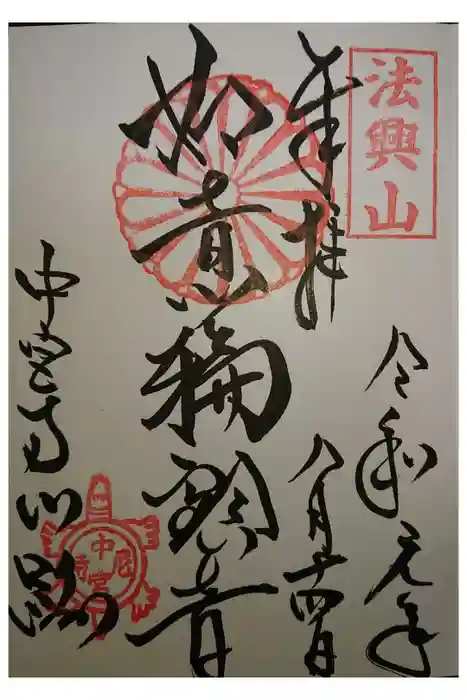 法興山
奉拝
令和元年
八月十四日
如意輪観音
中宮寺門跡
中宮尼寺